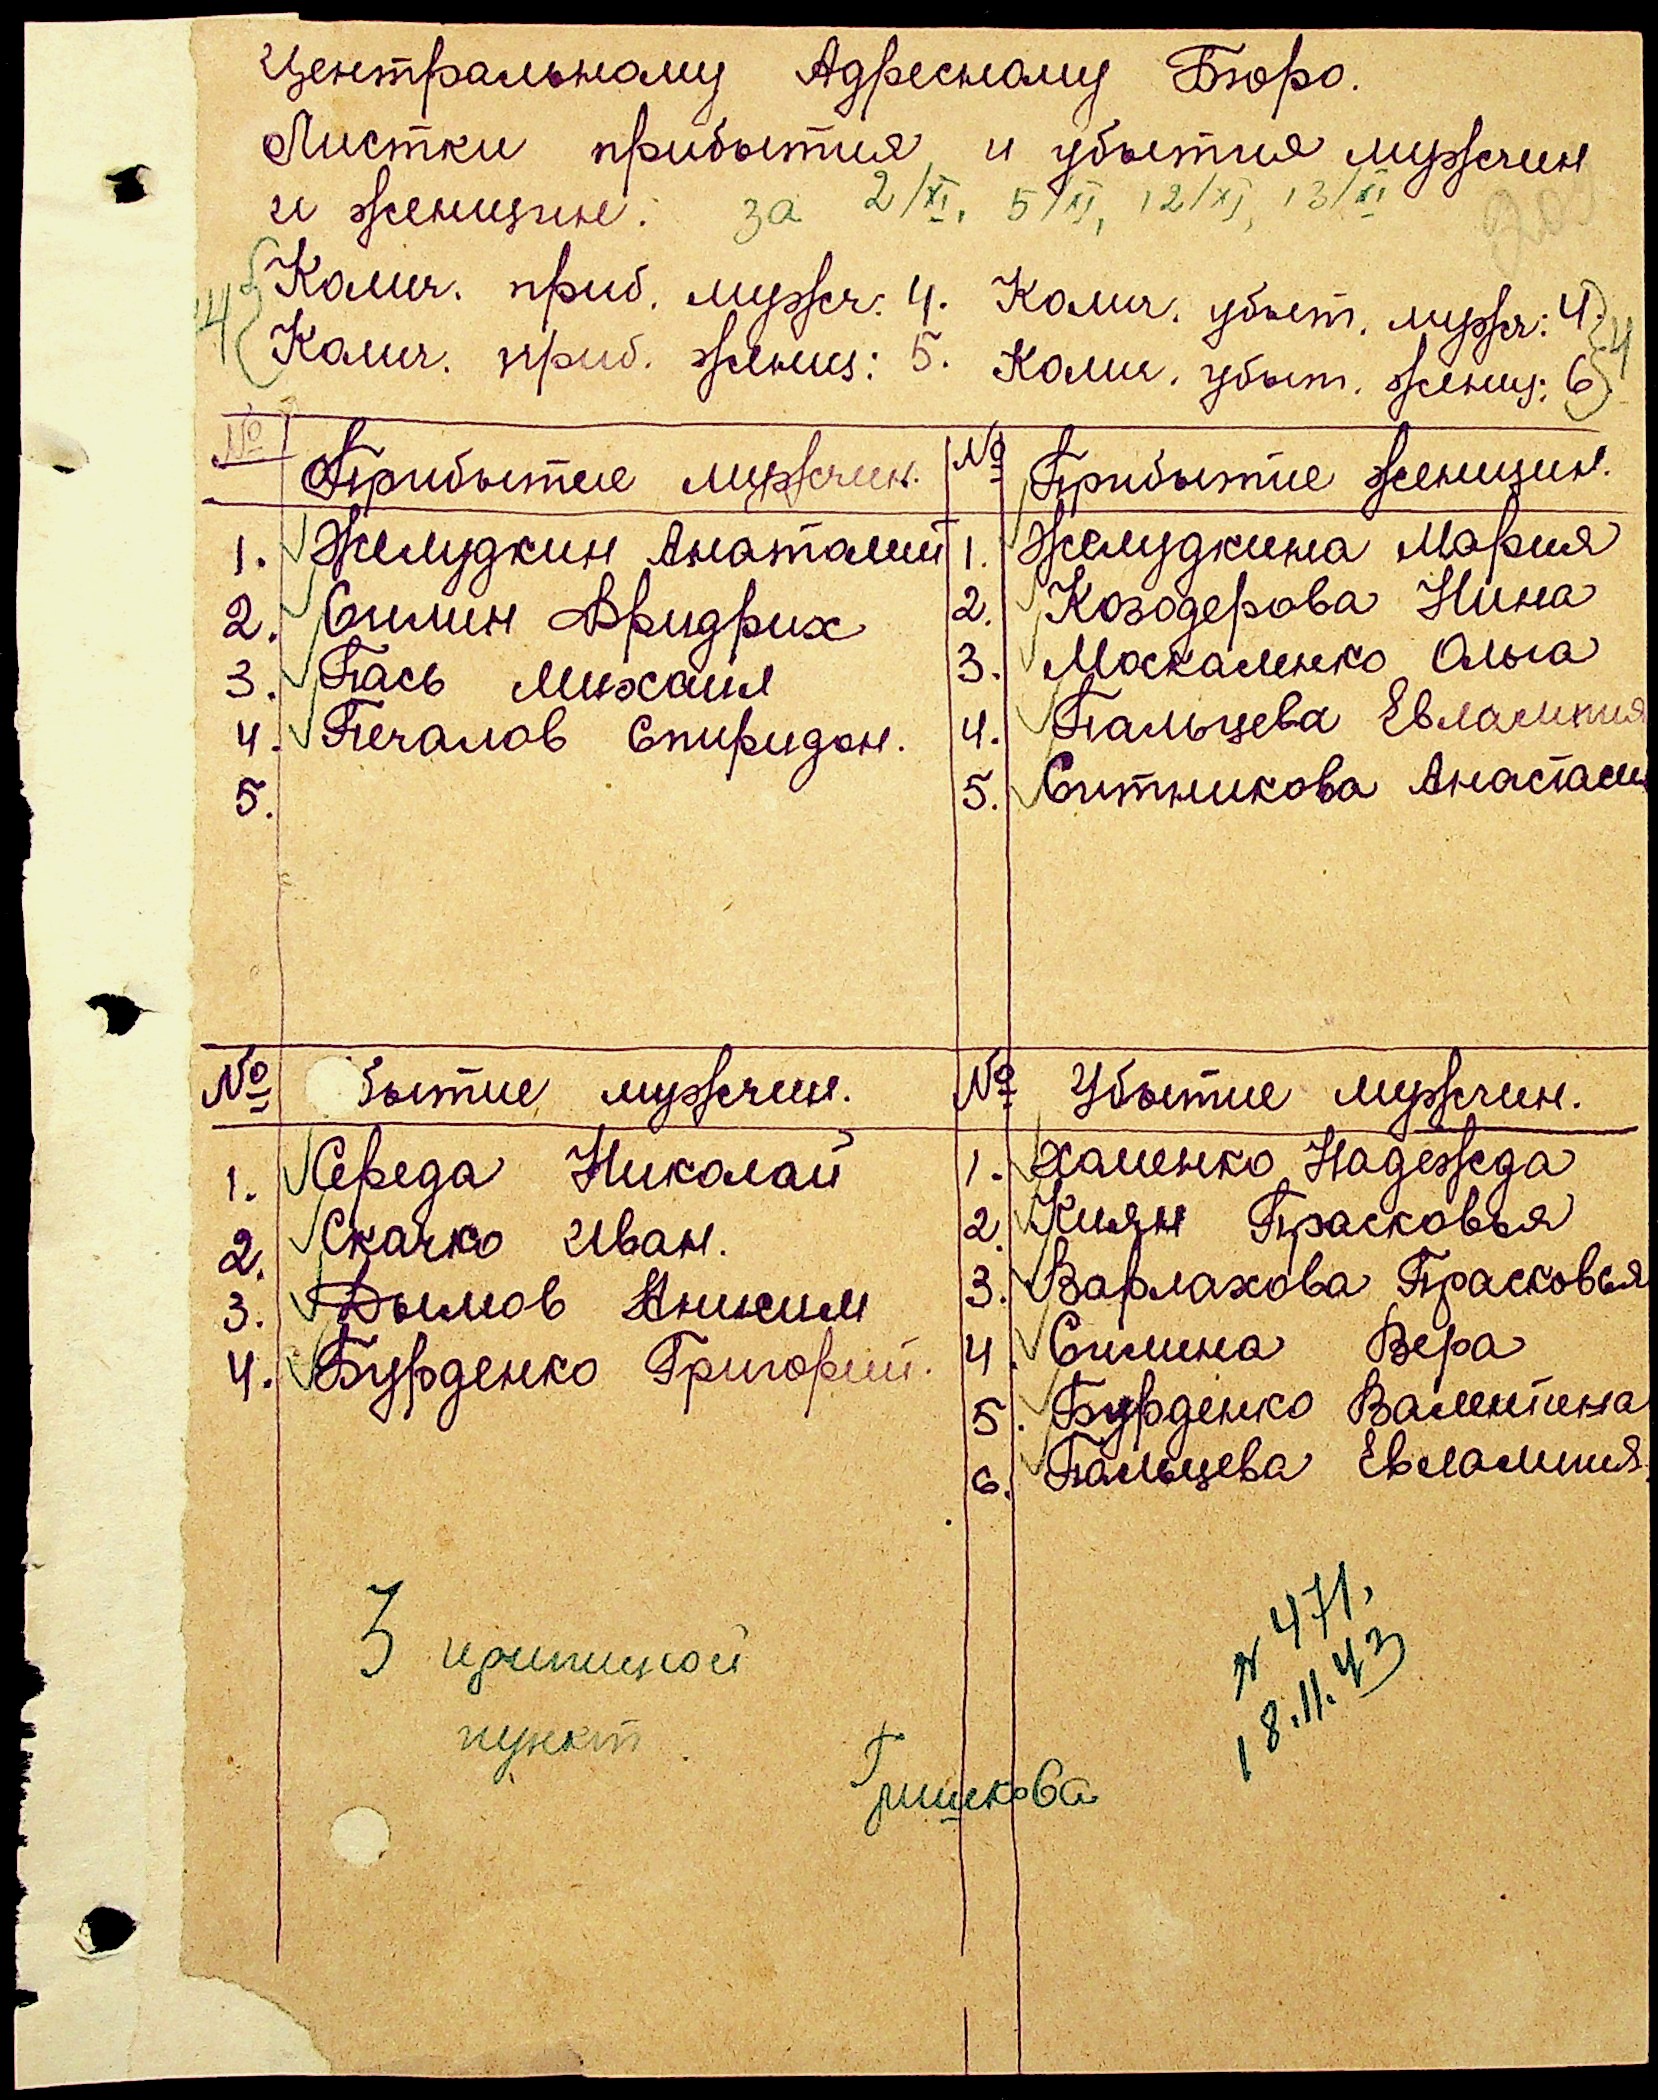 Центральному Адресному Бюро.
Листки прибытия и убытия мужчин
и женщин: за 2/XI, 5/XI, 12/XI, 13/XI
Колич. приб. мужч: 4. Колич. убыт. мужч: 4.
Колич. приб. женщ: 5. Колич. убыт. женщ: 6
№ Прибытие мужчин. № Прибытие женщин.
1. Желудкин Анатолий 1. Желудкина Мария
2. Силин Фридрих 2. Козодерова Нина
3. Пась Михаил 3. Москаленко Ольга
4. Печалов Спиридон. 4. Пальцева Евлампия
5. 5. Ситникова Анастаси
№ бытие мужчин. № Убытие мужчин.
1. Середа Николай 1. Хаменко Надежда
2. Скачко Иван. 2. Киян Прасковья
3. Дымов Анисим 3. Варлахова Прасковья
4. Бурденко Григорий. 4. Силина Вера
5. Бурденко Валентина
6. Пальцева Евлампия.
3
пункт
Гришкова
N 471,
18.11.43